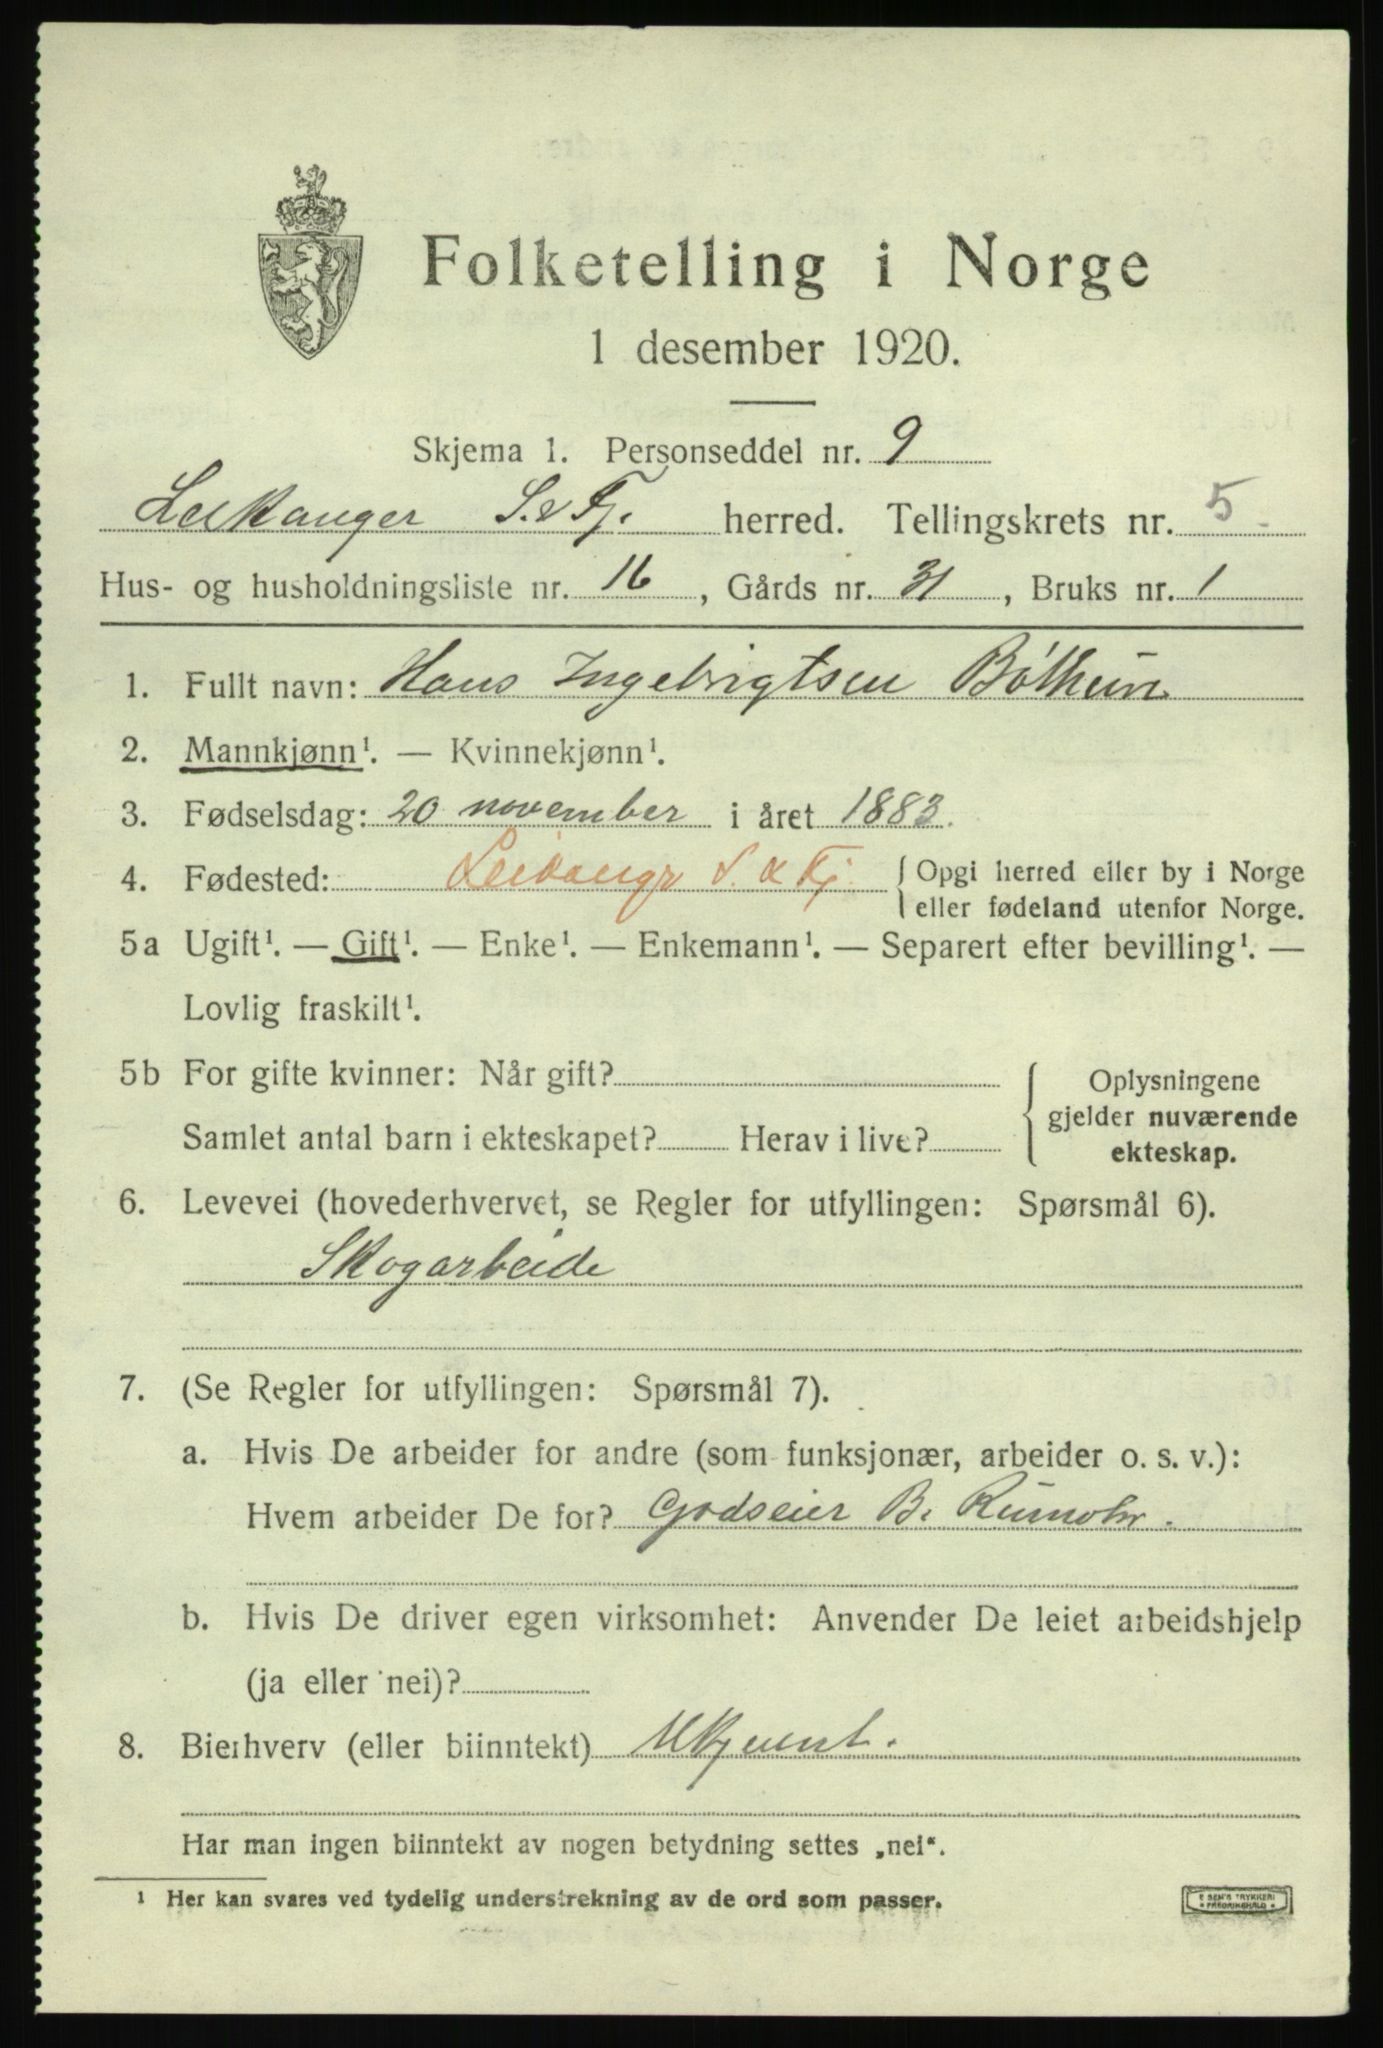 Folketelling i Norge
1 desember 1920.
Skjema 1. Personseddel nr. 9
Leikanger S. & Fj. herred. Tellingskrets nr. 5
Hus- og husholdningsliste nr. 16, Gårds nr. 31, Bruks nr. 1
1. Fullt navn: Hans Ingebrigtsen Bóthun
2. Mannkjønn¹. — Kvinnekjønn¹.
3. Fødselsdag: 20 november i året 1883.
4. Fødested: Leikangr S. & Fj. { Opgi herred eller by i Norge
eller fødeland utenfor Norge.
5a Ugift¹. — Gift¹. — Enke¹. — Enkemann¹. — Separert efter bevilling¹. —
Lovlig fraskilt¹.
5b For gifte kvinner: Når gift?
Samlet antal barn i ekteskapet? Herav i live?
{ Oplysningene
gjelder nuværende
ekteskap.
6. Levevei (hovederhvervet, se Regler for utfyllingen: Spørsmål 6).
Skogarbeide
7. (Se Regler for utfyllingen: Spørsmål 7).
a. Hvis De arbeider for andre (som funksjonær, arbeider o. s. v.):
Hvem arbeider De for? Godseier B. Rumohr.
b. Hvis De driver egen virksomhet: Anvender De leiet arbeidshjelp
(ja eller nei)?
8. Bierhverv (eller biinntekt) Ukjent.
Har man ingen biinntekt av nogen betydning settes „nei“.
¹ Her kan svares ved tydelig understrekning av de ord som passer.
TRYKKERI
FREDRIKSHALD